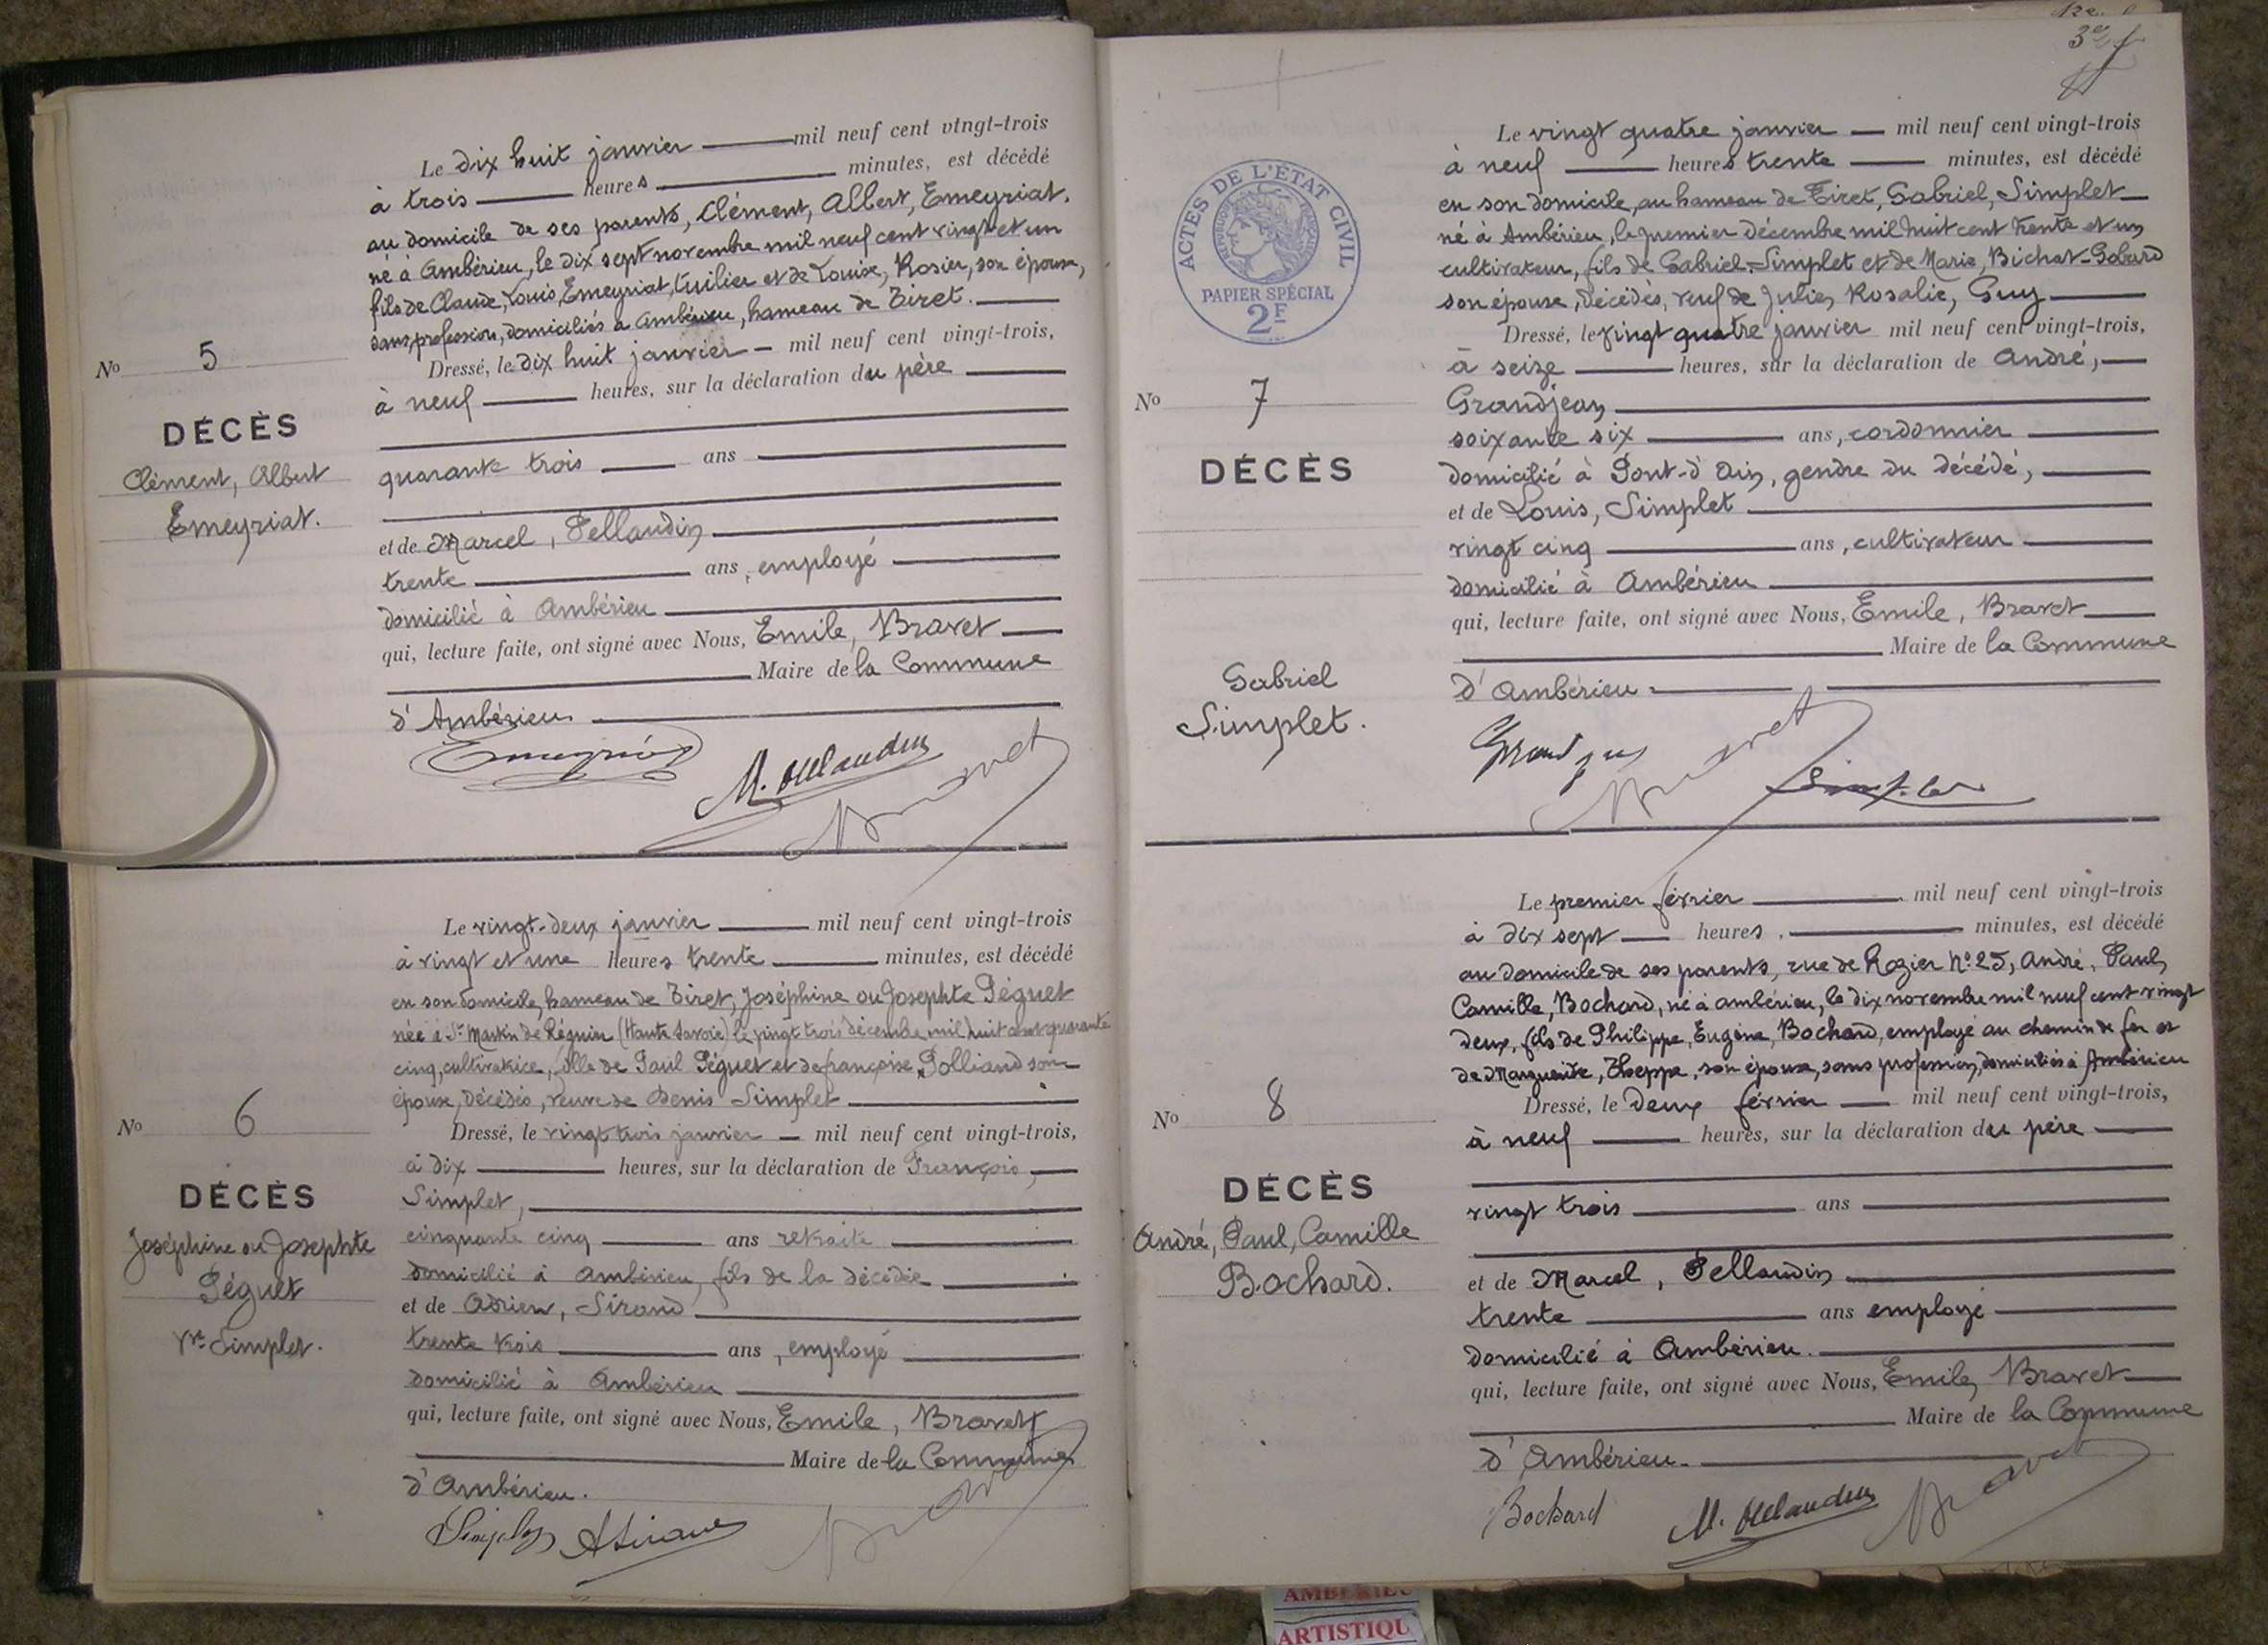 Le dix huit janvier mil neuf cent vingt-trois
à trois heures minutes, est décédé
au domicile de ses parents, Clément, Albert, Emeyriat.
né à Ambérieu, le dix sept novembre mil neuf cent vingt et un
fils de Claude, Louis, Emeyriat, tuilier et de Louise, Rosier, son épouse,
sans profession, domiciliés à Ambérieu, hameau de Tiret.
Dressé, le dix huit janvier mil neuf cent vingt-trois,
à neuf heures, sur la déclaration du père
quarante trois ans
et de Marcel, Pellaudin
trente ans, employé
domicilié à Ambérieu
qui, lecture faite, ont signé avec Nous, Emile, Bravet
Maire de la Commune
d'Ambérieu
No 5
DÉCÈS
Clément, Albert
Emeyriat.
Emeyriat
Bravet
Le vingt-deux janvier mil neuf cent vingt-trois
à vingt et une heures trente minutes, est décédé
en son domicile, hameau de Tiret, Joséphine ou Josephte Péguet
née à St Martin de (Haute Savoie) le vingt trois décembre mil huit cent quarante
cinq, cultivatrice, fille de Paul Péguet et de françoise Polliand son
épouse, décédés, veuve de Denis Simplet
Dressé, le vingt trois janvier mil neuf cent vingt-trois,
à dix heures, sur la déclaration de François,
Simplet,
cinquante cinq ans retraité
domicilié à Ambérieu, fils de la décédée
et de Adrien, Sirand
trente trois ans, employé
domicilié à Ambérieu
qui, lecture faite, ont signé avec Nous, Emile, Bravet
Maire de la Commune
d'Ambérieu.
No 6
DÉCÈS
Joséphine ou Josephte
Péguet
Vve Simplet.
Bravet
Le vingt quatre janvier mil neuf cent vingt-trois
à neuf heures trente minutes, est décédé
en son domicile, au hameau de Tiret, Gabriel, Simplet
né à Ambérieu, le premier décembre mil huit cent trente et un
cultivateur, fils de Gabriel Simplet et de Marie, Bichat-Gobard
son épouse, décédés, veuf de Julie, Rosalie, Guy
Dressé, le vingt quatre janvier mil neuf cent vingt-trois,
à seize heures, sur la déclaration de André,
Grandjean
soixante six ans, cordonnier
domicilié à Pont-d'Ain, gendre du décédé,
et de Louis, Simplet
vingt cinq ans, cultivateur
domicilié à Ambérieu
qui, lecture faite, ont signé avec Nous, Emile, Bravet
Maire de la Commune
d'Ambérieu
ACTES DE L'ÉTAT CIVIL
RÉPUBLIQUE FRANÇAISE
PAPIER SPÉCIAL
2F
No 7
DÉCÈS
Gabriel
Simplet.
Bravet
Le premier février mil neuf cent vingt-trois
à dix sept heures, minutes, est décédé
au domicile de ses parents, rue de Rozier No 25, André, Paul,
Camille, Bochard, né à Ambérieu, le dix novembre mil neuf cent vingt
deux, fils de Philippe, Eugène, Bochard, employé au chemin de fer et
de Marguerite, son épouse, sans profession, domiciliés à Ambérieu
Dressé, le deux février mil neuf cent vingt-trois,
à neuf heures, sur la déclaration du père
vingt trois ans
et de Marcel, Pellaudin
trente ans employé
domicilié à Ambérieu.
qui, lecture faite, ont signé avec Nous, Emile, Bravet
Maire de la Commune
d'Ambérieu.
No 8
DÉCÈS
André, Paul, Camille
Bochard.
Bochard
Bravet
AMBERIEU
ARTISTIQU